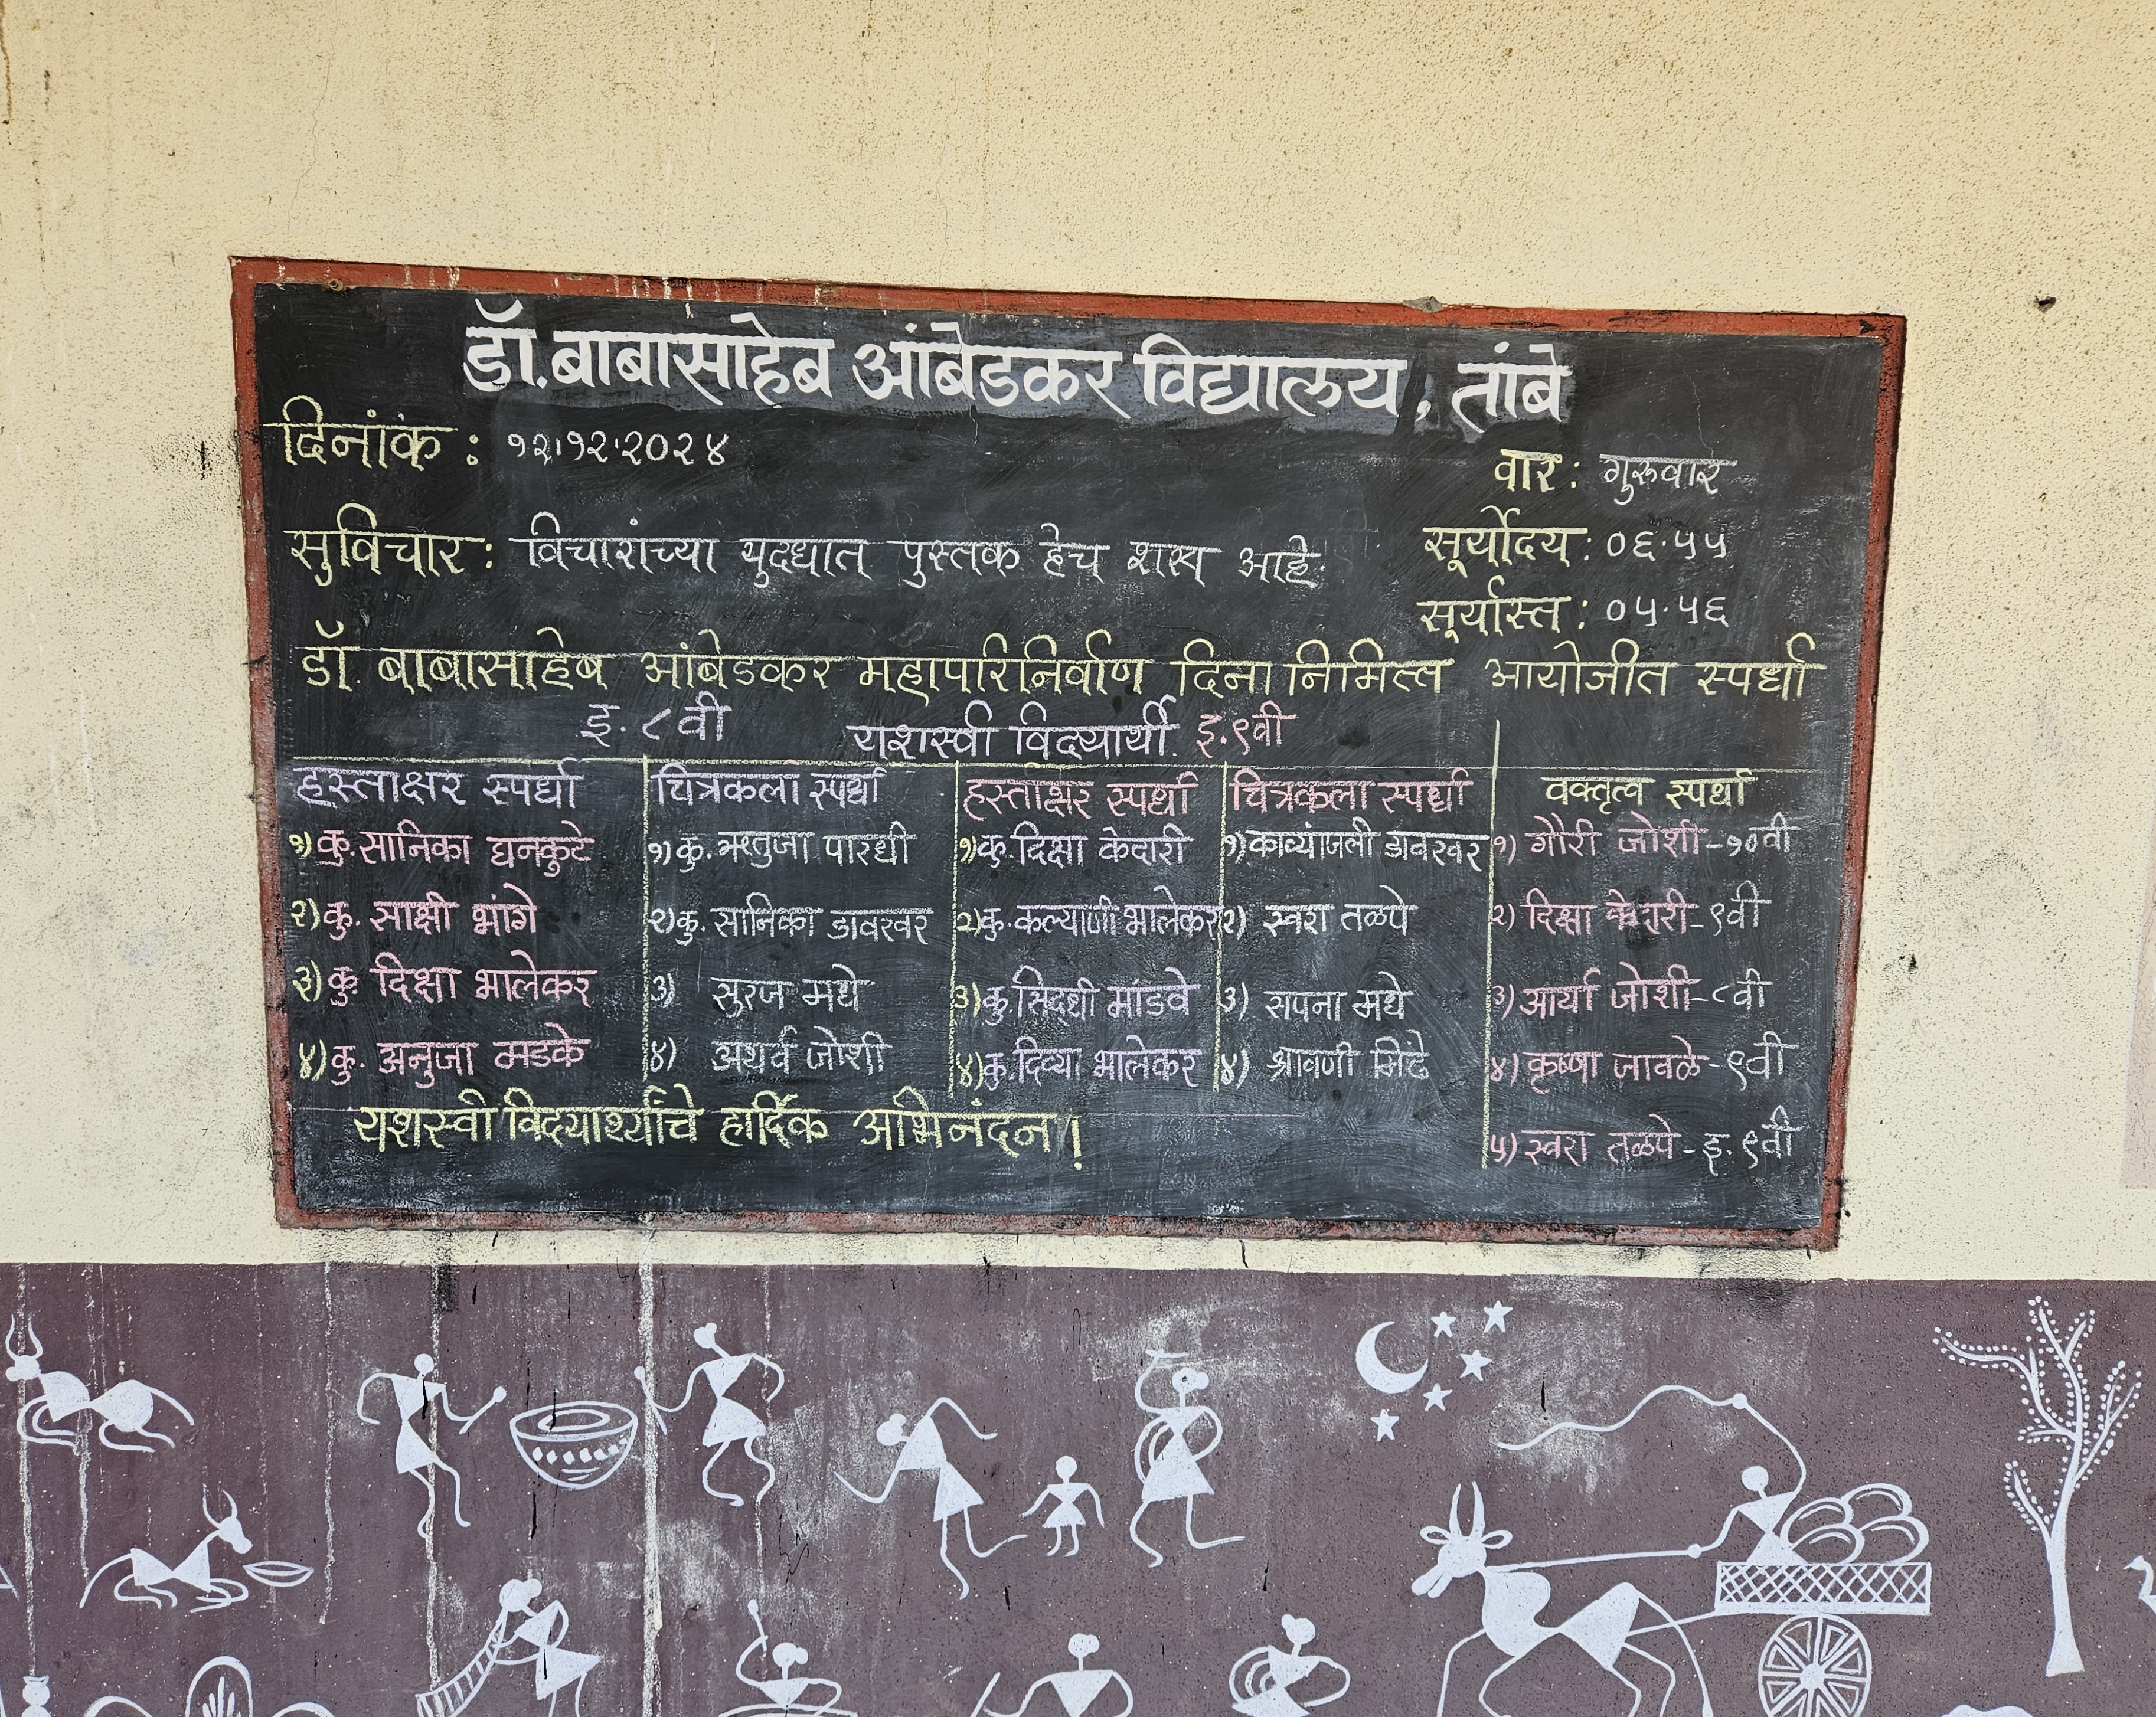 डॉ.बाबासाहेब आंबेडकर विद्यालय, तांबे
दिनांक : १२।१२।२०२४
वार : गुरुवार
सुविचार : विचारांच्या युदधात पुस्तक हेच शस्त्र आहे.
सूर्योदय : ०६.५५
सूर्यास्त : ०५.५६
डॉ. बाबासाहेब आंबेडकर महापरिनिर्वाण दिना निमित्त आयोजीत स्पर्धा
इ. ८वी यशस्वी विदयार्थी. इ.९वी
हस्ताक्षर स्पर्धा
१) कु.सानिका घनकुटे
२) कु. साक्षी भांगे
३) कु. दिक्षा भालेकर
४) कु. अनुजा मडके
चित्रकला स्पर्धा
१) कु. ऋतुजा पारधी
२) कु. सानिका डावखर
३) सुरज मधे
४) अथर्व जोशी
हस्ताक्षर स्पर्धा
१) कु.दिक्षा केदारी
२) कु.कल्याणी भालेकर
३) कु.सिदधी मांडवे
४) कु.दिव्या भालेकर
चित्रकला स्पर्धा
१) काव्यांजली डावखर
२) स्वरा तळपे
३) सपना मधे
४) श्रावणी मिंढे
वक्तृत्व स्पर्धा
१) गौरी जोशी-१०वी
२) दिक्षा केदारी-९वी
३) आर्या जोशी-८वी
४) कृष्णा जावळे-९वी
५) स्वरा तळपे-इ. ९वी
यशस्वी विदयार्थ्यांचे हार्दिक अभिनंदन!